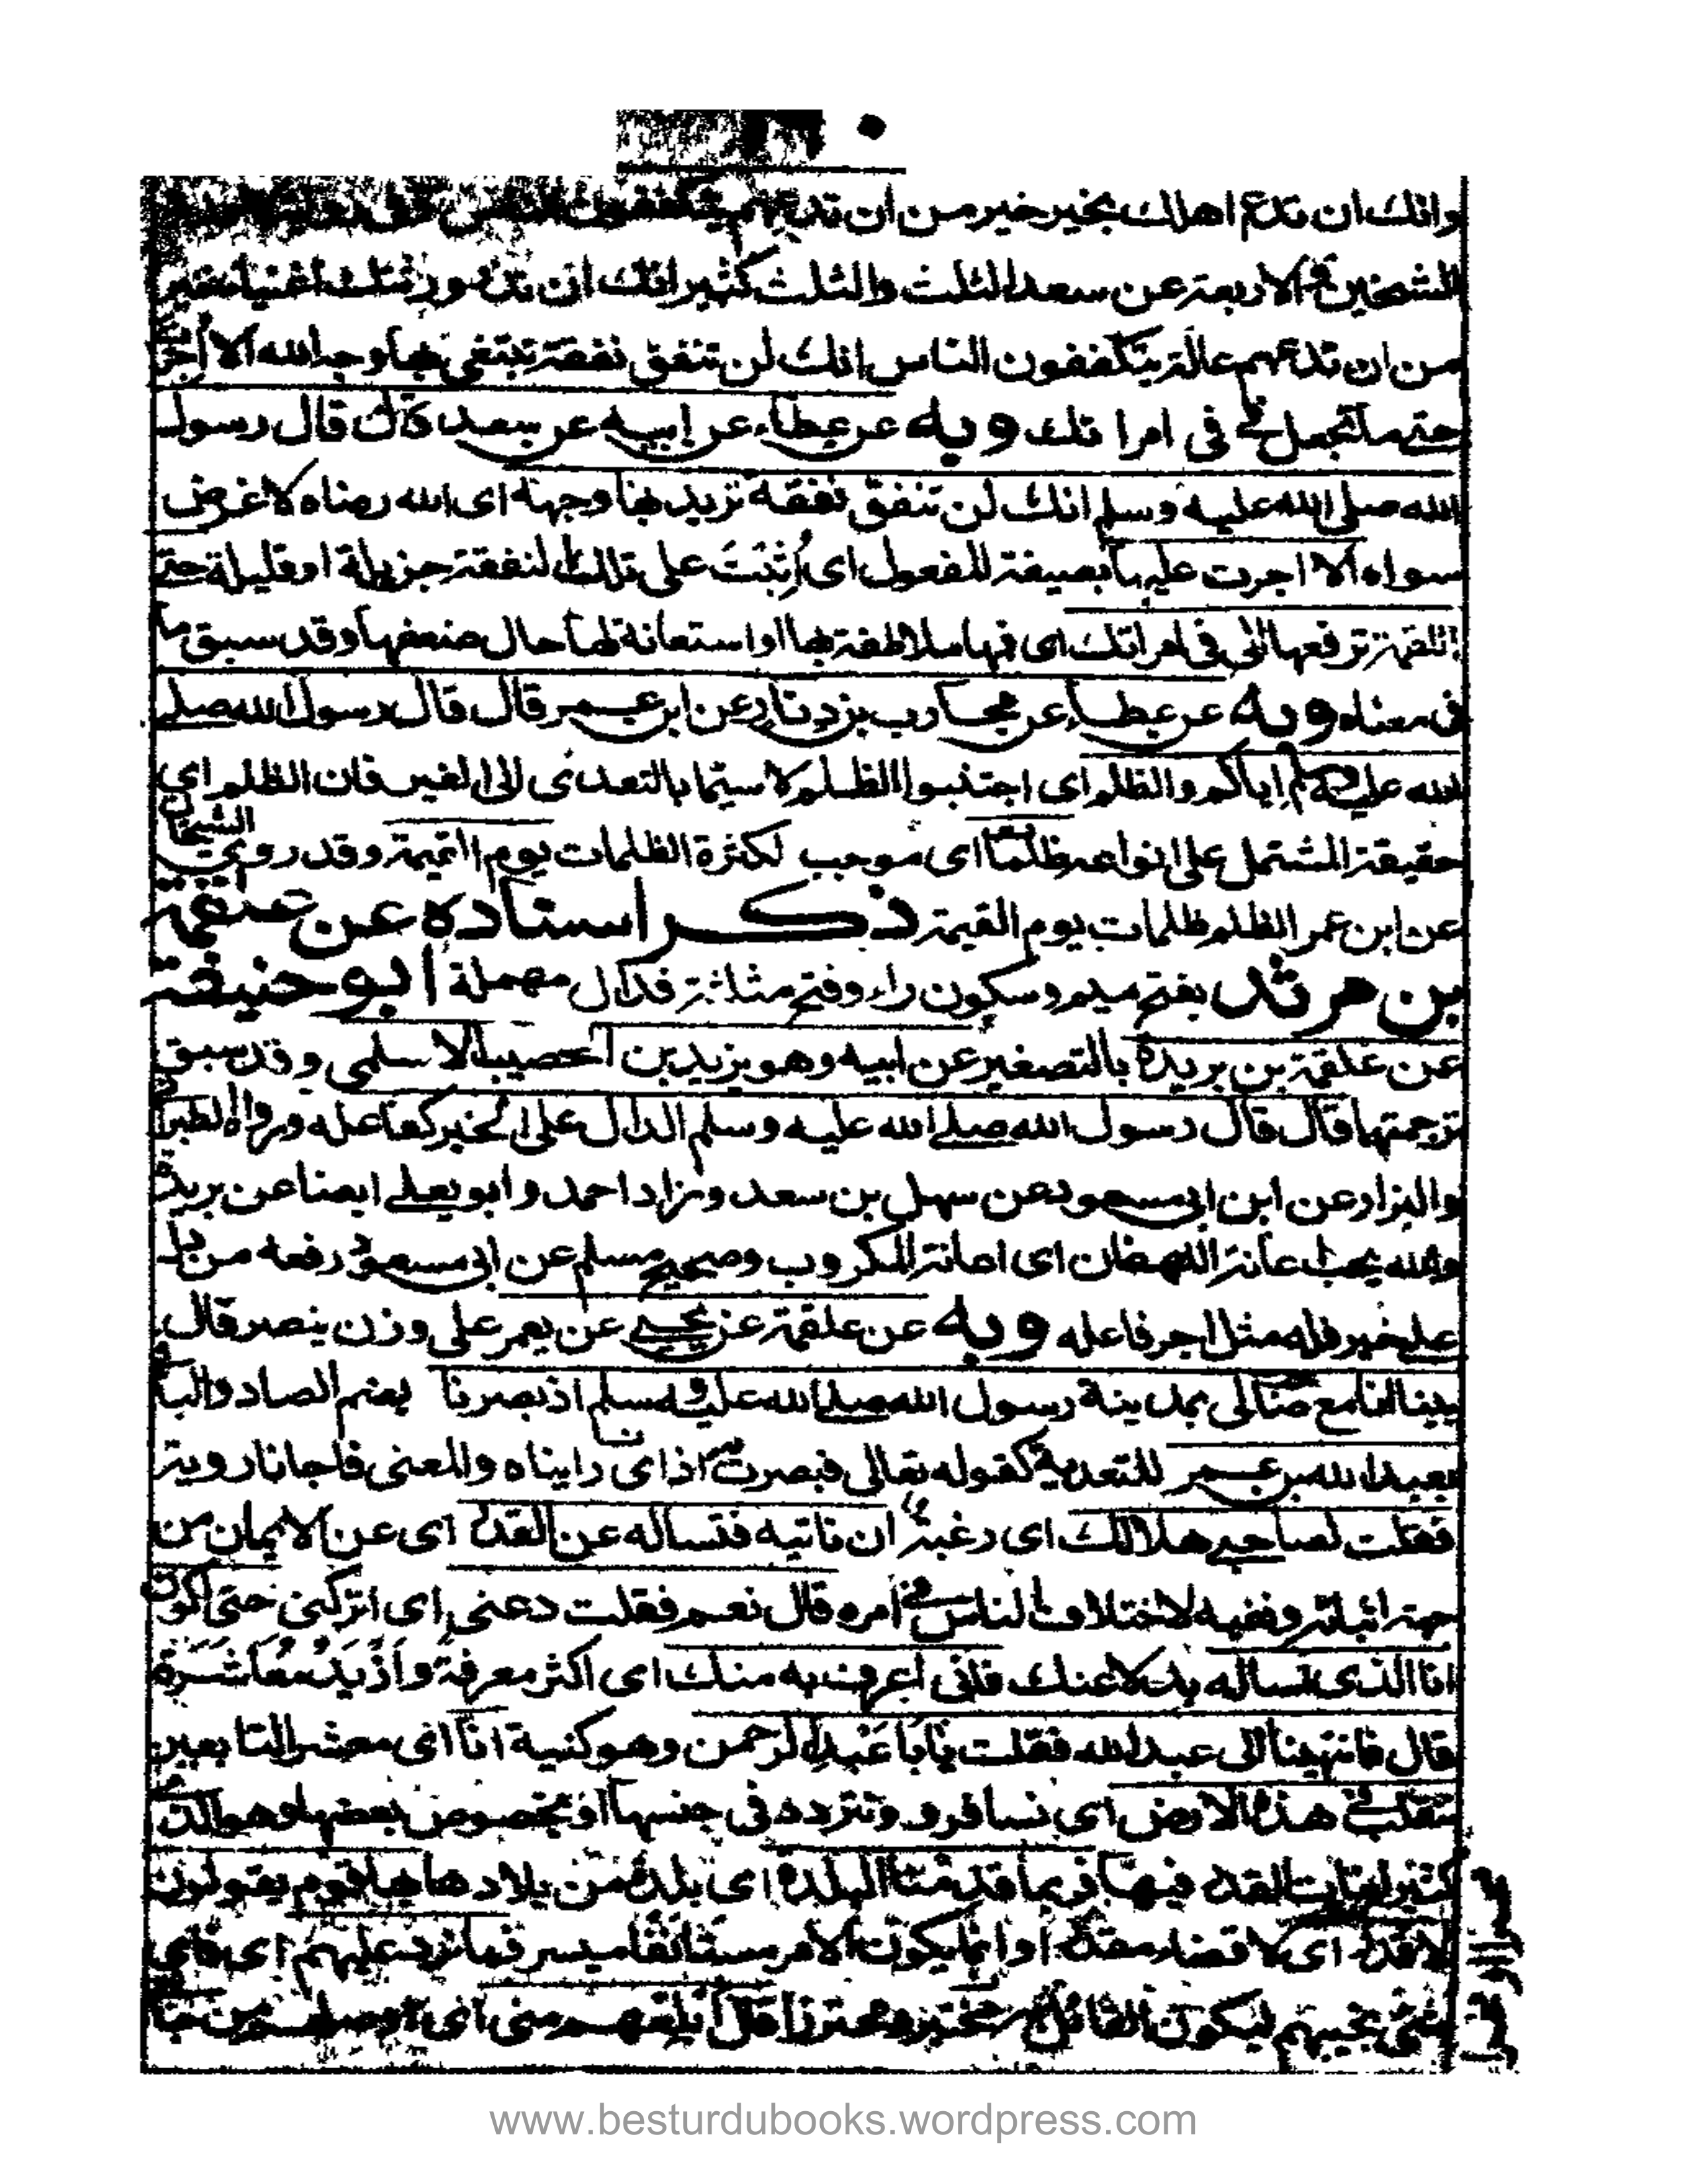 وانك ان تدع اهلك بخير خير من ان تدعهم يتكففون الناس وفى رواية
الشيخين والاربعة عن سعد الثلث والثلث كثير انك ان تذر ورثتك اغنياء خير
من ان تدعهم عالة يتكففون الناس انك لن تنفق نفقة تبتغى بها وجه الله الا اجرت
حتى ما تجعل فى فى امراتك وبه عن عطاء عن ابيه عن سعد قال قال رسول
الله صلى الله عليه وسلم انك لن تنفق نفقة تريد بها وجهه اى الله رضاه لا غرض
سواه الا اجرت عليها بصيغة المفعول اى اثبت على تلك النفقة جزيلة او قليلة حتى
اللقمة ترفعها الى فى امراتك اى فمها ملاطفة بها او استعانة لها حال ضعفها وقد سبق ما
فى معناه وبه عن عطاء عن محارب بن دثار عن ابن عمر قال قال رسول الله صلى
الله عليه وسلم اياكم والظلم اى اجتنبوا الظلم لا سيما بالتعدى الى الغير فان الظلم اى
حقيقة المشتمل على انواعه ظلمات اى موجب لكثرة الظلمات يوم القيمة وقد روى الشيخان
عن ابن عمر الظلم ظلمات يوم القيمة ذكر اسناده عن علقمة
بن مرثد بفتح ميم وسكون راء وفتح مثلثة فدال مهملة ابو حنيفة
عن علقمة بن بريدة بالتصغير عن ابيه وهو بزيد بن الحصيب الاسلمى وقد سبق
ترجمتها قال قال رسول الله صلى الله عليه وسلم الدال على الخير كفاعله ورواه الطبرانى
والبزار عن ابن ابى مسعود عن سهل بن سعد وزاد احمد وابو يعلى ايضا عن بريدة
والله يحب اغاثة اللهفان اى اعانة المكروب وصحيح مسلم عن ابى مسعود رفعه من دل
على خير فله مثل اجر فاعله وبه عن علقمة عن يحيى عن يعمر على وزن ينصر قال
بينا انا مع صاحب لى بمدينة رسول الله صلى الله عليه وسلم اذ بصرنا بضم الصاد والباء
بعبد الله بن عمر للتعدية كقوله تعالى فبصرت به اذ اى راينا والمعنى فاجانا روية
فقلت لصاحبى هل لك اى رغبة ان ناتيه فنساله عن القدر اى عن الايمان من
جهة اثباته ونفيه لاختلاف الناس فى امره قال نعم فقلت دعنى اى اتركنى حتى اكون
انا الذى اساله بدلا عنك فانى اعرف به منك اى اكثر معرفة وازيد معاشرة
قال فانتهينا الى عبد الله فقلت يا ابا عبد الرحمن وهو كنية انا اى معشر التابعين
نتقلب فى هذه الارض اى نسافر ونتردد فى جنسها او بخصوص بعضها وهو الذى
فيها فربما قدمنا البلدة اى بلدة من بلادها بها قوم يقولون
لا قدر اى لا قضاء مقدر او انما يكون الامر مستانفا ميسر فما نرد عليهم اى فاى
شئ نجيبهم ليكون القائل قال ابلغهم منى اى
www.besturdubooks.wordpress.com